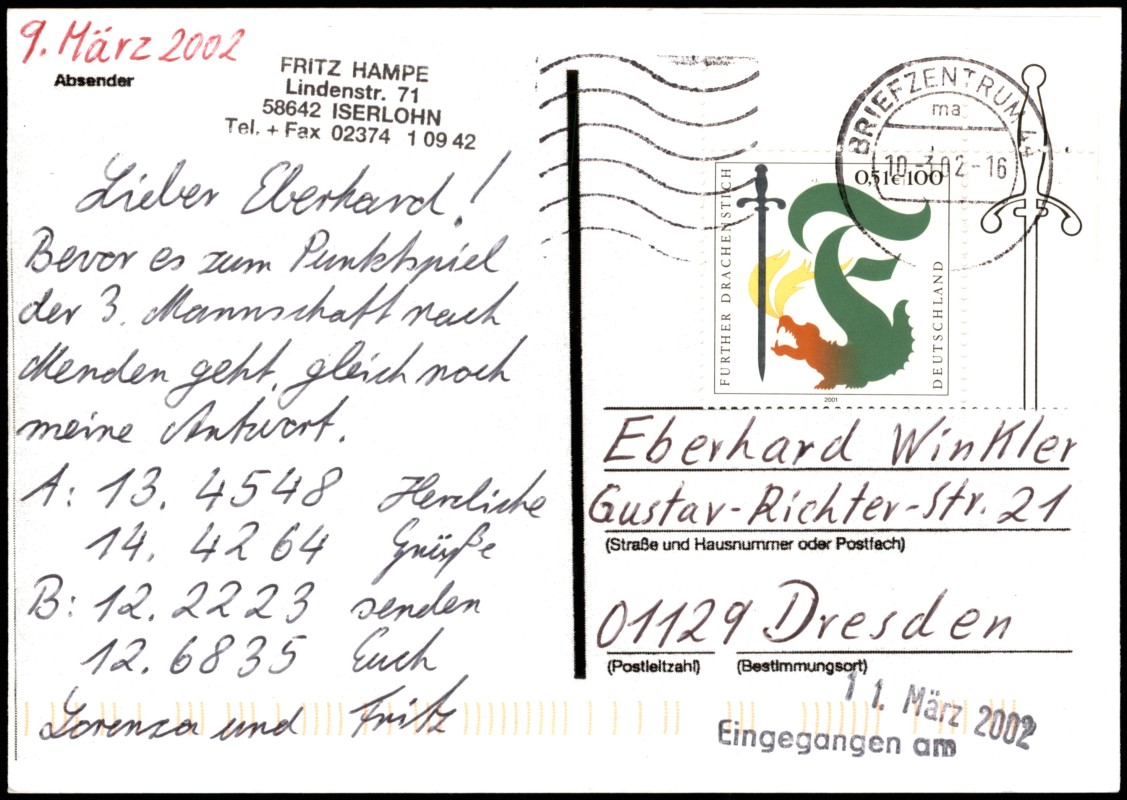 9. März 2002
Absender
FRITZ HAMPE
Lindenstr. 71
58642 ISERLOHN
Tel. + Fax 02374 1 09 42
Lieber Eberhard!
Bevor es zum Punktspiel
der 3. Mannschaft nach
Menden geht, gleich noch
meine Antwort.
A: 13. 4548 Herzliche
14. 4264 Grüße
B: 12. 2223 senden
12. 6835 Euch
Lorenza und Fritz
BRIEFZENTRUM
ma
10.-3.02-16
0,51€ 100
FURTHER DRACHENSTICH
DEUTSCHLAND
2001
Eberhard Winkler
Gustav-Richter-Str. 21
(Straße und Hausnummer oder Postfach)
01129 Dresden
(Postleitzahl) (Bestimmungsort)
11. März 2002
Eingegangen am